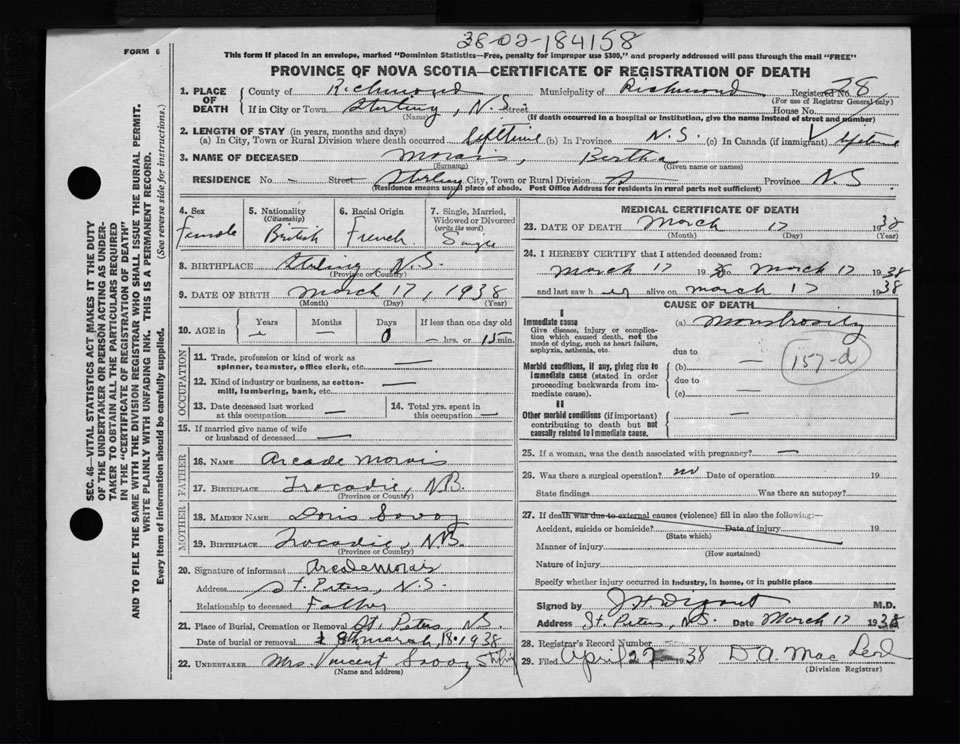 38-02-184158
FORM 6
This form if placed in an envelope, marked "Dominion Statistics—Free, penalty for improper use $300," and properly addressed will pass through the mail "FREE"
PROVINCE OF NOVA SCOTIA—CERTIFICATE OF REGISTRATION OF DEATH
1. PLACE OF DEATH
County of Richmond Municipality of Richmond Registered No. 78
(For use of Registrar General only)
If in City or Town Stirling, N.S. Street House No.
(Name) (If death occurred in a hospital or institution, give the name instead of street and number)
2. LENGTH OF STAY (in years, months and days)
(a) In City, Town or Rural Division where death occurred lifetime (b) In Province N.S. (c) In Canada (if immigrant) lifetime
3. NAME OF DECEASED Morais, Bertha
(Surname) (Given name or names)
RESIDENCE No. - Street Stirling City, Town or Rural Division Province N.S.
(Residence means usual place of abode. Post Office Address for residents in rural parts not sufficient)
4. Sex Female
5. Nationality (Citizenship) British
6. Racial Origin French
7. Single, Married, Widowed or Divorced (write the word) Single
8. BIRTHPLACE Stirling N.S.
(Province or Country)
9. DATE OF BIRTH March 17, 1938
(Month) (Day) (Year)
10. AGE in Years — Months — Days 0 If less than one day old — hrs. or 15 min.
OCCUPATION
11. Trade, profession or kind of work as spinner, teamster, office clerk, etc. —
12. Kind of industry or business, as cotton-mill, lumbering, bank, etc. —
13. Date deceased last worked at this occupation —
14. Total yrs. spent in this occupation —
15. If married give name of wife or husband of deceased —
FATHER
16. NAME Arcade Morais
17. BIRTHPLACE Tracadie, N.B.
(Province or Country)
MOTHER
18. MAIDEN NAME Doris Savoy
19. BIRTHPLACE Tracadie, N.B.
(Province or Country)
20. Signature of informant Arcade Morais
Address St. Peters, N.S.
Relationship to deceased Father
21. Place of Burial, Cremation or Removal St. Peters, N.S.
Date of burial or removal March, 18 1938
22. UNDERTAKER Mrs. Vincent Savoy Stirling
(Name and address)
MEDICAL CERTIFICATE OF DEATH
23. DATE OF DEATH March 17 1938
(Month) (Day) (Year)
24. I HEREBY CERTIFY that I attended deceased from:
March 17 19 to March 17 1938
and last saw h er alive on March 17 1938
CAUSE OF DEATH
I
Immediate cause
Give disease, injury or complication which caused death, not the mode of dying, such as heart failure, asphyxia, asthenia, etc.
(a) Monstrosity
due to
157-d
Morbid conditions, if any, giving rise to immediate cause (stated in order proceeding backwards from immediate cause).
(b) —
due to
(c) —
II
Other morbid conditions (if important) contributing to death but not causally related to immediate cause. —
25. If a woman, was the death associated with pregnancy? —
26. Was there a surgical operation? no Date of operation 19
State findings Was there an autopsy?
27. If death was due to external causes (violence) fill in also the following:—
Accident, suicide or homicide? Date of injury 19
(State which)
Manner of injury
(How sustained)
Nature of injury
Specify whether injury occurred in industry, in home, or in public place
Signed by M.D.
Address St. Peters, N.S. Date March 17 1938
28. Registrar's Record Number
29. Filed April 27 1938 D.A. MacLeod
(Division Registrar)
SEC. 46—VITAL STATISTICS ACT MAKES IT THE DUTY
OF THE UNDERTAKER OR PERSON ACTING AS UNDER-
TAKER TO OBTAIN ALL THE PARTICULARS REQUIRED
IN THE "CERTIFICATE OF REGISTRATION OF DEATH"
AND TO FILE THE SAME WITH THE DIVISION REGISTRAR WHO SHALL ISSUE THE BURIAL PERMIT.
WRITE PLAINLY WITH UNFADING INK. THIS IS A PERMANENT RECORD.
Every item of information should be carefully supplied. (See reverse side for instructions.)